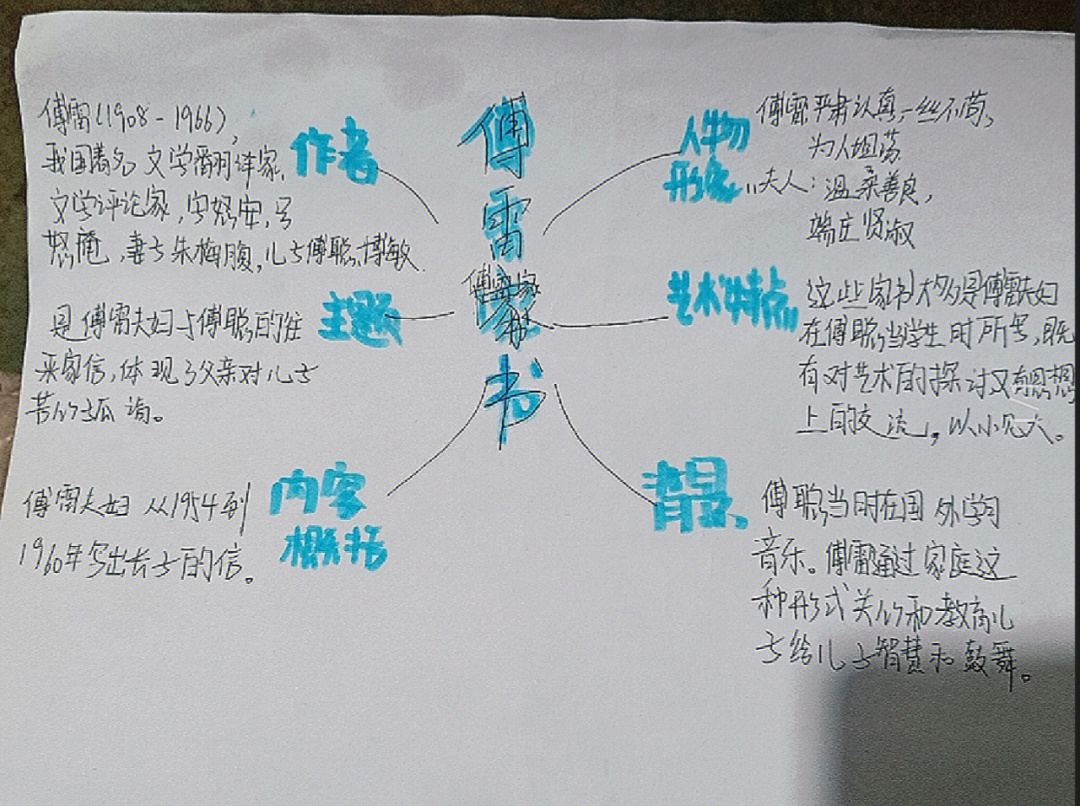 傅雷家书
傅雷家书
作者
傅雷(1908-1966),
我国著名文学翻译家,
文学评论家,字怒安,号
怒庵,妻子朱梅馥,儿子傅聪、傅敏
主题
是傅雷夫妇与傅聪的往
来家信,体现了父亲对儿子
苦心孤诣。
内容
概括
傅雷夫妇从1954到
1960年写出长子的信。
人物
形象
傅雷严肃认真,一丝不苟,
为人坦荡
夫人:温柔善良,
端庄贤淑
艺术特点
这些家书大多是傅雷夫妇
在傅聪当学生时所写,既
有对艺术的探讨又有思想
上的交流,以小见大。
背景
傅聪当时在国外学习
音乐。傅雷通过家庭这
种形式关心和教育儿
子给儿子智慧和鼓舞。